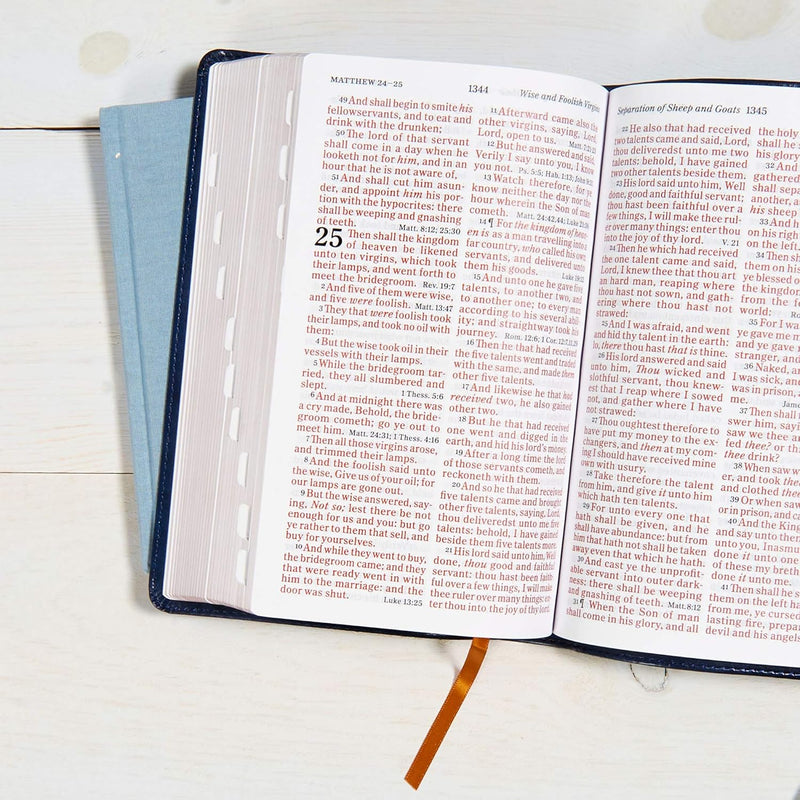 MATTHEW 24–25
1344
Wise and Foolish Virgins
49 And shall begin to smite his
fellowservants, and to eat and
drink with the drunken;
50 The lord of that servant
shall come in a day when he
looketh not for him, and in an
hour that he is not aware of,
51 And shall cut him asun-
der, and appoint him his por-
tion with the hypocrites: there
shall be weeping and gnashing
of teeth. Matt. 8:12; 25:30
25 Then shall the kingdom
of heaven be likened
unto ten virgins, which took
their lamps, and went forth to
meet the bridegroom. Rev. 19:7
2 And five of them were wise,
and five were foolish. Matt. 13:47
3 They that were foolish took
their lamps, and took no oil with
them:
4 But the wise took oil in their
vessels with their lamps.
5 While the bridegroom tar-
ried, they all slumbered and
slept. 1 Thess. 5:6
6 And at midnight there was
a cry made, Behold, the bride-
groom cometh; go ye out to
meet him. Matt. 24:31; 1 Thess. 4:16
7 Then all those virgins arose,
and trimmed their lamps.
8 And the foolish said unto
the wise, Give us of your oil; for
our lamps are gone out.
9 But the wise answered, say-
ing, Not so; lest there be not
enough for us and you: but go
ye rather to them that sell, and
buy for yourselves.
10 And while they went to buy,
the bridegroom came; and they
that were ready went in with
him to the marriage: and the
door was shut. Luke 13:25
11 Afterward came also the
other virgins, saying, Lord,
Lord, open to us. Matt. 7:21
12 But he answered and said,
Verily I say unto you, I know
you not. Ps. 5:5; Hab. 1:13; John 9:31
13 Watch therefore, for ye
know neither the day nor the
hour wherein the Son of man
cometh. Matt. 24:42,44; Luke 21:36
14 ¶ For the kingdom of heaven
is as a man travelling into a
far country, who called his own
servants, and delivered unto
them his goods. Luke 19:12
15 And unto one he gave five
talents, to another two, and
to another one; to every man
according to his several abil-
ity; and straightway took his
journey. Rom. 12:6; 1 Cor. 12:7,11,29
16 Then he that had received
the five talents went and traded
with the same, and made them
other five talents.
17 And likewise he that had
received two, he also gained
other two.
18 But he that had received
one went and digged in the
earth, and hid his lord's money.
19 After a long time the lord
of those servants cometh, and
reckoneth with them.
20 And so he that had received
five talents came and brought
other five talents, saying, Lord,
thou deliveredst unto me five
talents: behold, I have gained
beside them five talents more.
21 His lord said unto him, Well
done, thou good and faithful
servant: thou hast been faith-
ful over a few things, I will make
thee ruler over many things: en-
ter thou into the joy of thy lord.
Separation of Sheep and Goats 1345
22 He also that had received
two talents came and said, Lord,
thou deliveredst unto me two
talents: behold, I have gained
two other talents beside them.
23 His lord said unto him, Well
done, good and faithful servant;
thou hast been faithful over a
few things, I will make thee rul-
er over many things: enter thou
into the joy of thy lord. V. 21
24 Then he which had received
the one talent came and said,
Lord, I knew thee that thou art
an hard man, reaping where
thou hast not sown, and gath-
ering where thou hast not
strawed:
25 And I was afraid, and went
and hid thy talent in the earth:
lo, there thou hast that is thine.
26 His lord answered and said
unto him, Thou wicked and
slothful servant, thou knew-
est that I reap where I sowed
not, and gather where I have
not strawed:
27 Thou oughtest therefore to
have put my money to the ex-
changers, and then at my com-
ing I should have received mine
own with usury.
28 Take therefore the talent
from him, and give it unto him
which hath ten talents.
29 For unto every one that
hath shall be given, and he
shall have abundance: but from
him that hath not shall be taken
away even that which he hath.
30 And cast ye the unprofit-
able servant into outer dark-
ness: there shall be weeping
and gnashing of teeth. Matt. 8:12
31 ¶ When the Son of man
shall come in his glory, and all
the holy
shall he s
his glory:
32 And
gathered
shall sepa
another, a
his sheep
33 And h
on his right
on the left.
34 Then sh
them on his
ye blessed o
the kingdom
from the fo
world:
35 For I wa
ye gave me m
and ye gave
stranger, and
36 Naked, an
I was sick, and
was in prison, a
me. Jame
37 Then shall
swer him, sayi
saw we thee an
fed thee? or th
thee drink?
38 When saw w
er, and took thee
and clothed thee
39 Or when saw
or in prison, and ca
40 And the King
and say unto them
unto you, Inasmu
done it unto one
of these my breth
done it unto me.
41 Then shall he s
them on the left ha
from me, ye cursed
lasting fire, prepar
devil and his angels